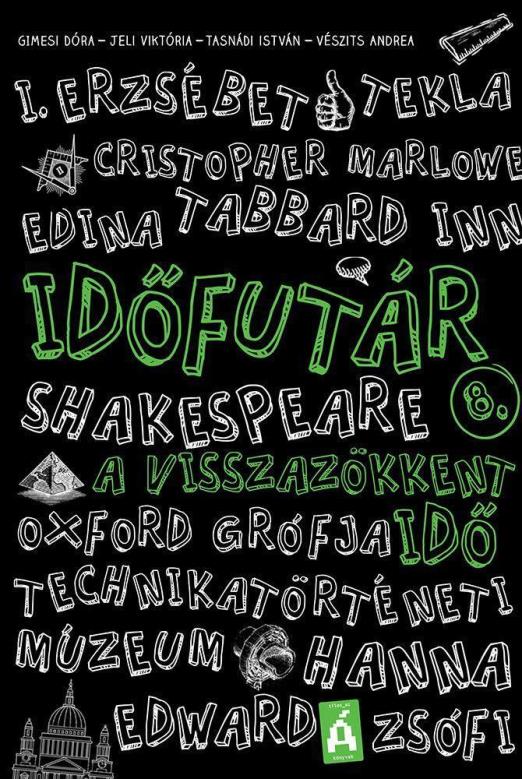 GIMESI DÓRA – JELI VIKTÓRIA – TASNÁDI ISTVÁN – VÉSZITS ANDREA
I. ERZSÉBET TEKLA
CRISTOPHER MARLOWE
EDINA TABBARD INN
IDŐFUTÁR
SHAKESPEARE 8.
A VISSZAZÖKKENT
OXFORD GRÓFJA IDŐ
TECHNIKATÖRTÉNETI
MÚZEUM HANNA
EDWARD
tilos_az
Á
könyvek
ZSÓFI